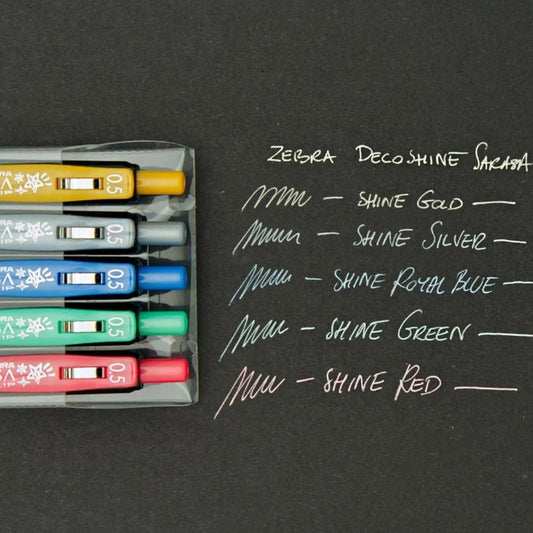 ZEBRA DECOSHINE SARASA
SHINE GOLD
SHINE SILVER
SHINE ROYAL BLUE
SHINE GREEN
SHINE RED
0.5
0.5
0.5
0.5
0.5